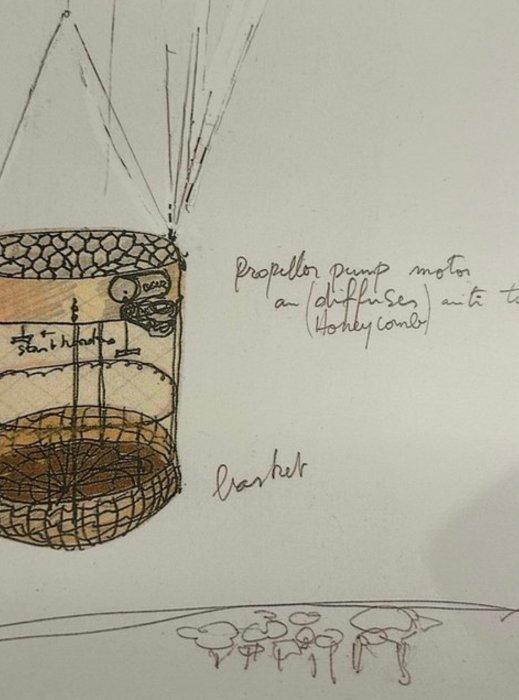 Propellor pump motor
an (diffuses) anti t
(Honeycomb)
basket